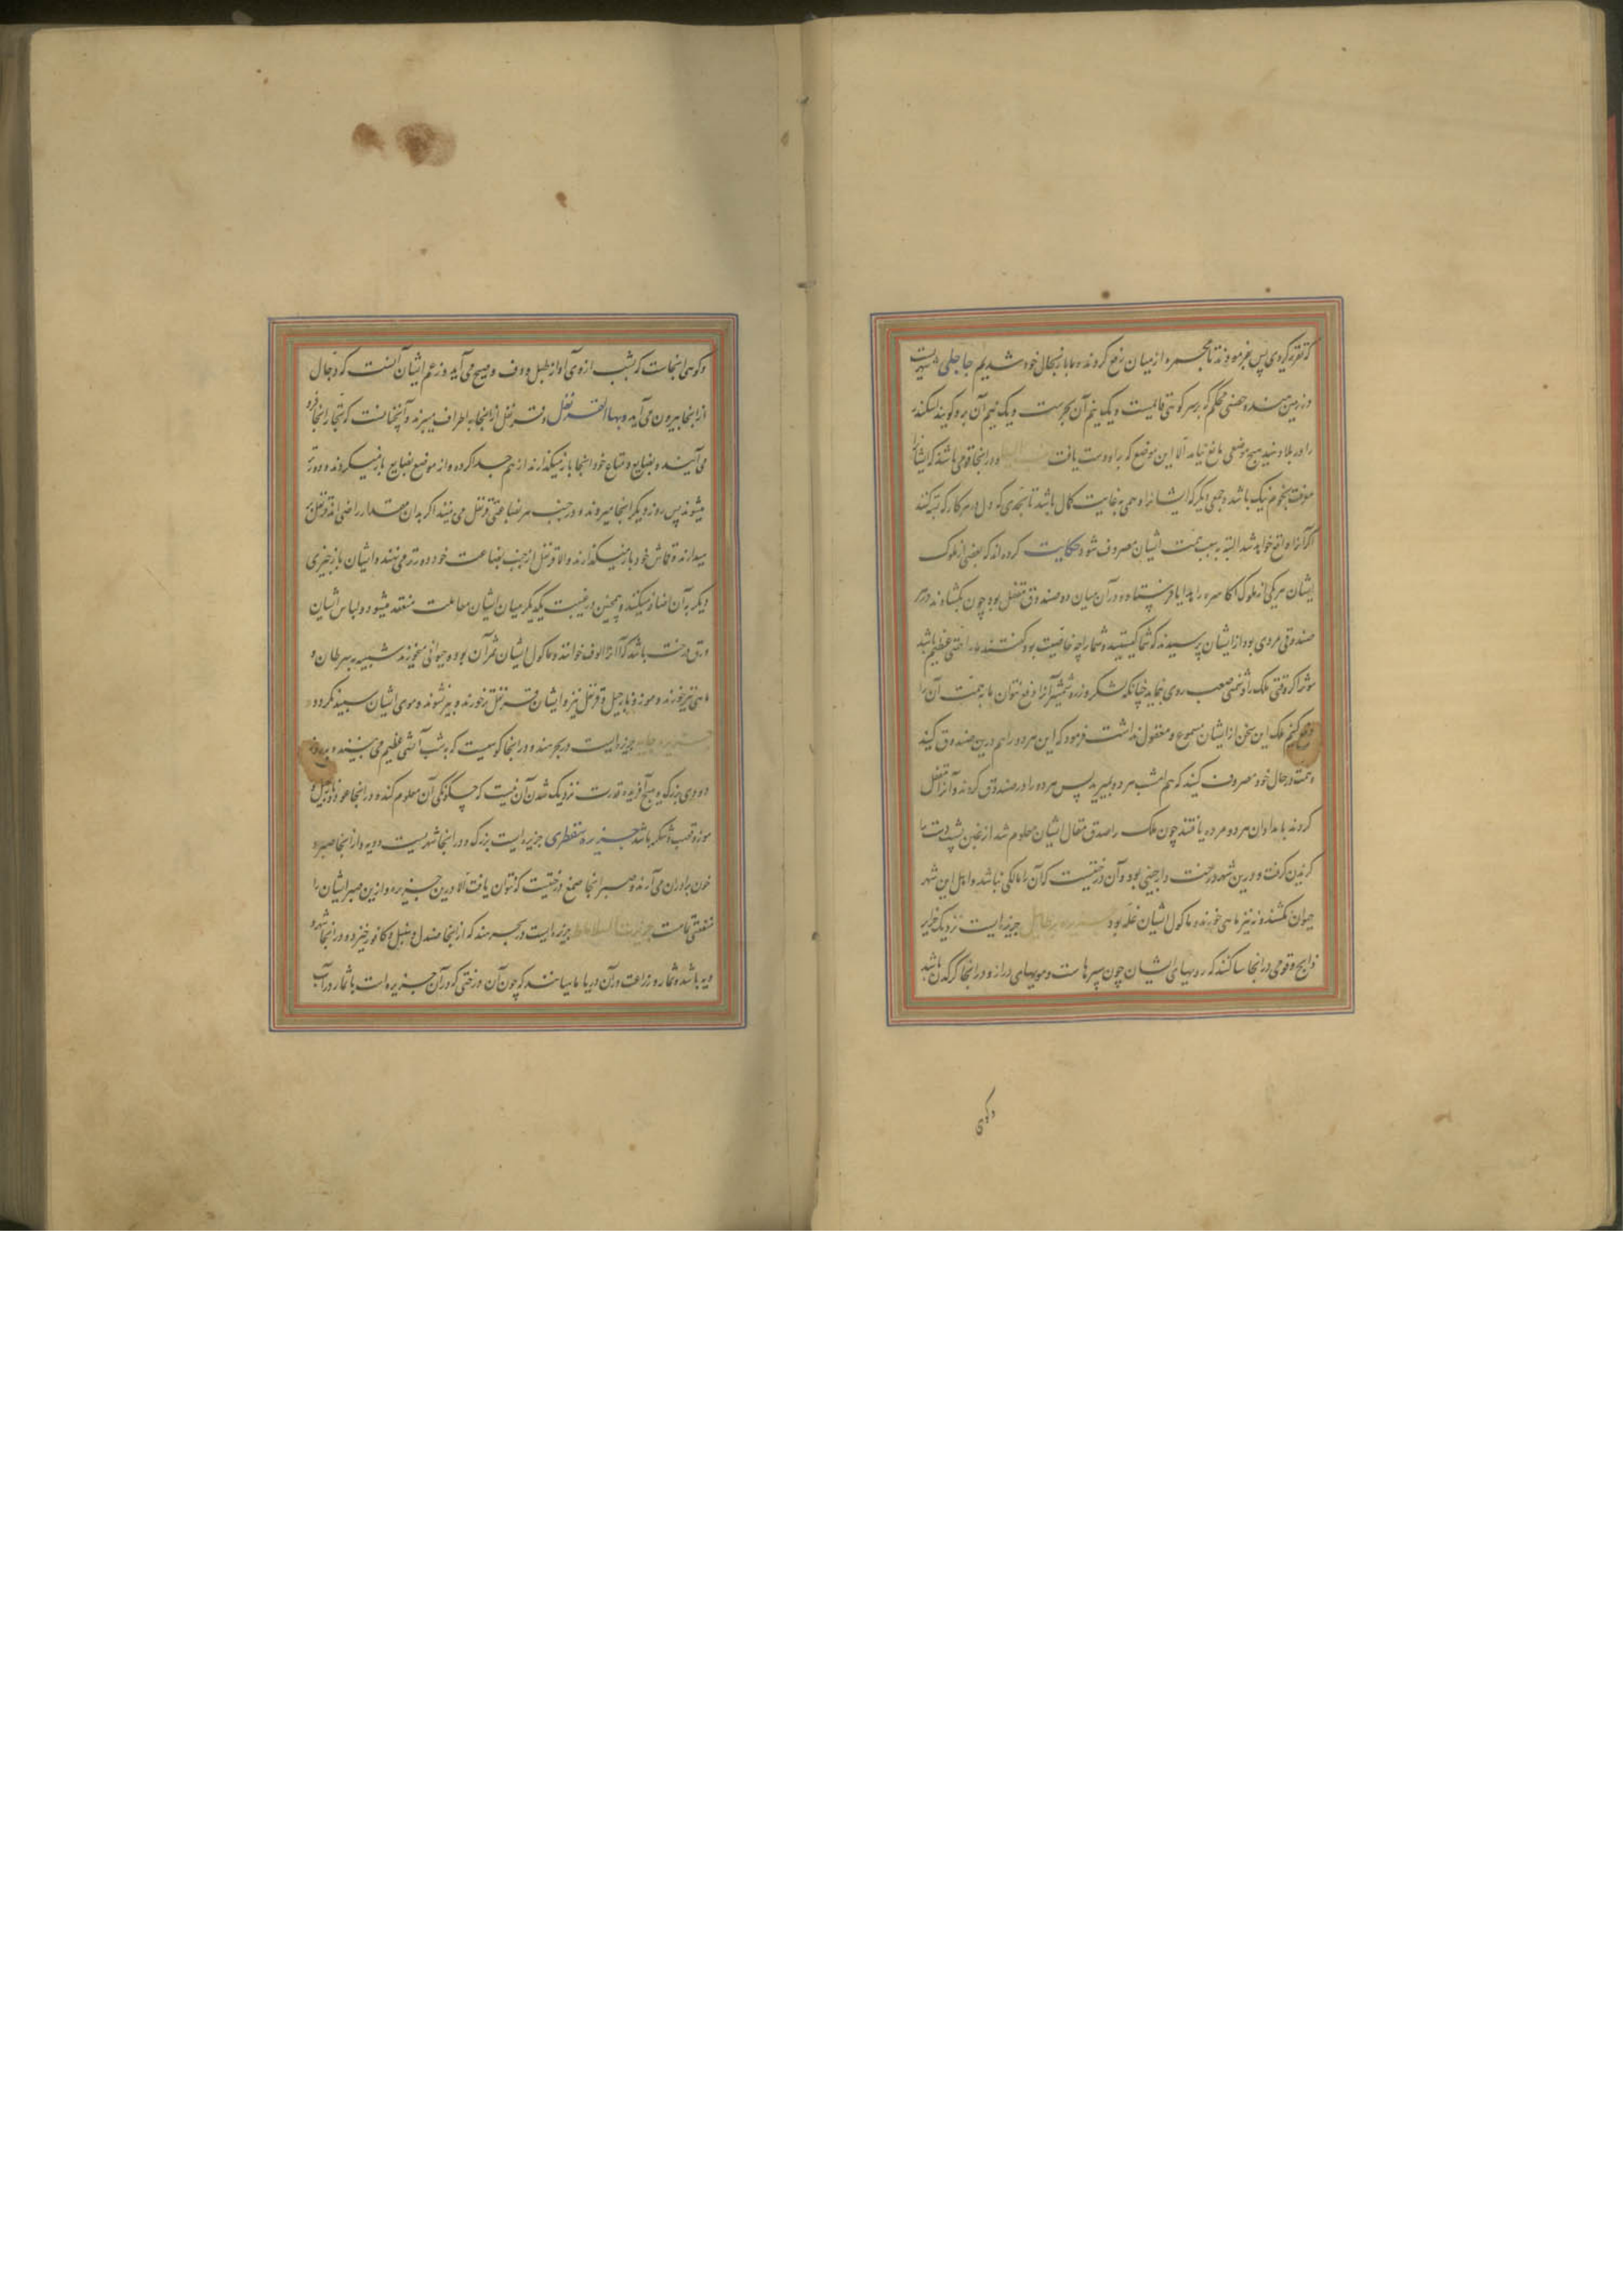 که تقریر کردی پس بفرمودند تا مجمره از میان رفع کردند و ما باز بحال خود شدیم جاجلی شهریست
در زمین هند و حصنی محکم که بر سر کوهی واقعیست و یک نیم آن بحرست و یک نیم آن بر و گویند اسکندر
را در بلاد هند هیچ موضعی مانع نیامد الا این موضع که برو دست یافت و در اینجا قومی باشند که ایشانرا
معرفت بنجوم نیک باشد و جمعی دیگر که ایشانرا وهمی بغایت کمال باشد تا بحدی که دل در هر کار که بسته کنند
اگر آنرا واقع خواهد شد البته بسبب همت ایشان مصروف شود حکایت کرده اند که بعضی از ملوک
ایشان بر یکی از ملوک اکاسره را هدایا فرستاد و در آن میان دو صندوق مقفل بود چون بگشادند در هر
صندوقی مردی بود از ایشان پرسیدند که شما کیستید و شما را چه خاصیت بود گفتند ما را همتی عظیم باشد
مؤثر که وقتی ملک را دشمنی صعب روی نماید چنانکه لشکر و زره و شمشیر آنرا دفع نتوان ما به همت آن را
دفع کنیم ملک این سخن از ایشان مسموع و معقول نداشت فرمود که این هر دو را هم درین صندوق کنید
و همت در حال خود مصروف کنید که هم امشب هر دو بمیرید پس هر دو را در صندوق کردند و آنرا مقفل
کردند بامدادان هر دو مرده یافتند چون ملک را صدق مقال ایشان معلوم شد از غبن پشت دست را
گزیدن گرفت و درین شهر درخت دارچینی بود و آن درختیست که آن را مالکی نباشد و اهل این شهر
حیوان نکشند و نیز ماهی خورند و ماکول ایشان غله بود جزیره برطایل جزیره ایست نزدیک جزایر
زابج و قومی در اینجا ساکنند که رویهای ایشان چون سپرهاست و مویهای دراز و در اینجا کرگدن باشد
وکوهی
و کوهی اینجاست که شب از وی آواز طبل و دف و صیح می آید و زعم ایشان آنست که دجال
از اینجا بیرون می آید و بها القرنفل و قرنفل از اینجا به اطراف میبرند و آنچنانست که تجار اینجا فرو
می آیند و بضایع و متاع خود اینجا باز میگذارند از هم جدا کرده و از موضع بضایع باز میگردند و دورتر
میشوند پس روز دیگر اینجا میروند و در جنب هر بضاعتی قرنفل می بینند اگر بدان مقدار راضی اند قرنفل بر
میدارند و قماش خود باز میگذارند و الا قرنفل از جنب بضاعت خود دورتر می نهند و ایشان باز چیزی
دیگر به آن اضافه میکنند و همچنین در غیبت یکدیگر میان ایشان معاملت منعقد میشود و لباس ایشان
ورق درخت باشد که آنرا الوف خوانند و ماکول ایشان ثمر آن بود و حیوانی میخورند شبیه به سرطان و
ماهی نیز خورند و موز و نارجیل و قرنفل نیز و ایشان قرنفل تر خورند و پیر نشوند و موی ایشان سپید نگردد
جزیره جابه جزیره ایست در بحر هند و در اینجا کوهیست که به شب آتشی عظیم می بینند و بروز
دودی بزرگ و هیچ آفریده قدرت نزدیک شدن آن نیست که چگونگی آن معلوم کند و در اینجا عود و نارجیل و
موز و قصب و شکر باشد جزیره سقطری جزیره ایست بزرگ و در اینجا شهریست و دیه و از اینجا صبر و
خون برادران می آرند و صبر اینجا صمغ درختیست که نتوان یافت الا درین جزیره و ازین صبر ایشان را
منفعتی تمامست جزیرة السلاهط جزیره ایست در بحر هند که از اینجا صندل و سنبل و کافور خیزد و در اینجا شهر و
دیه باشد و ثمار و زراعت و در آن دریا ماهیانند که چون آن درختی که در آن جزیره است با ثمار در آب